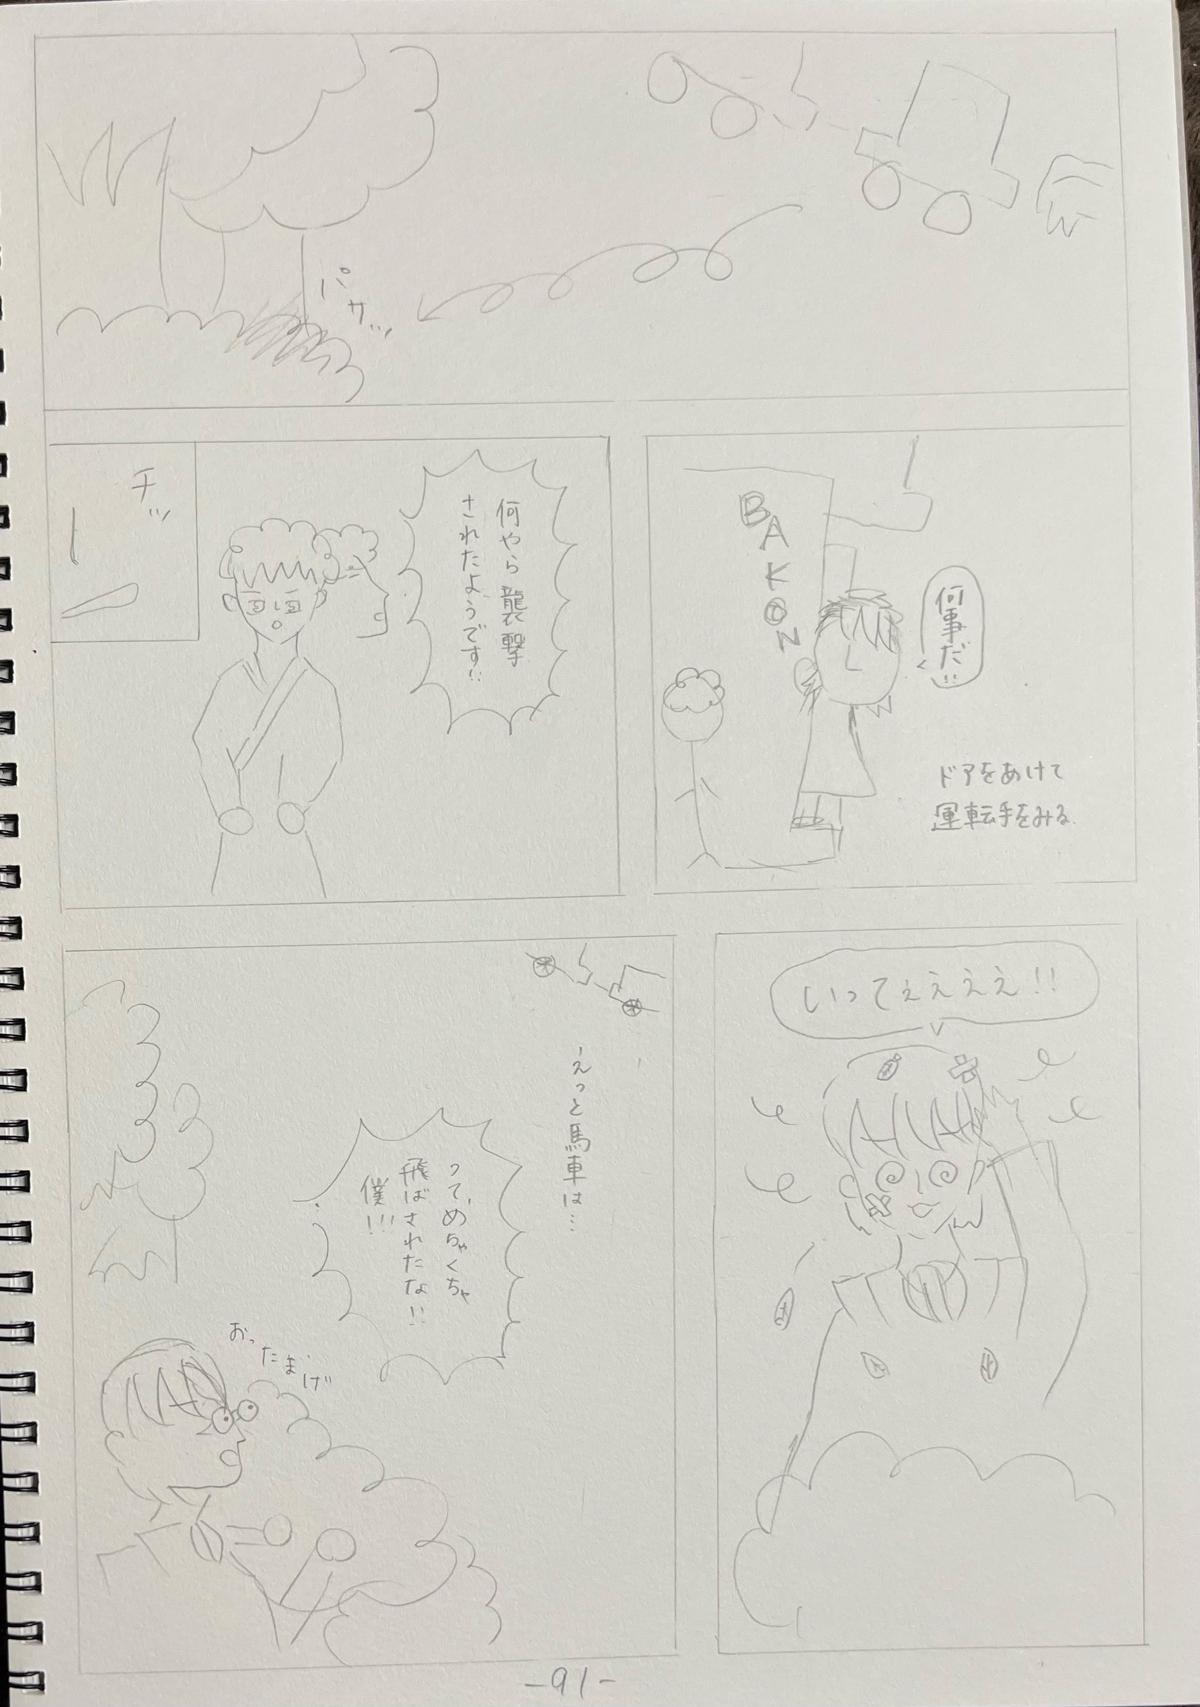 パサッ
BAKON
何事だ!!
ドアをあけて
運転手をみる
何やら襲撃
されたようです!!
チッ
いってぇぇぇぇ!!
えっと馬車は…
って、めちゃくちゃ
飛ばされたな!!
僕!!!
おったまげ
-91-